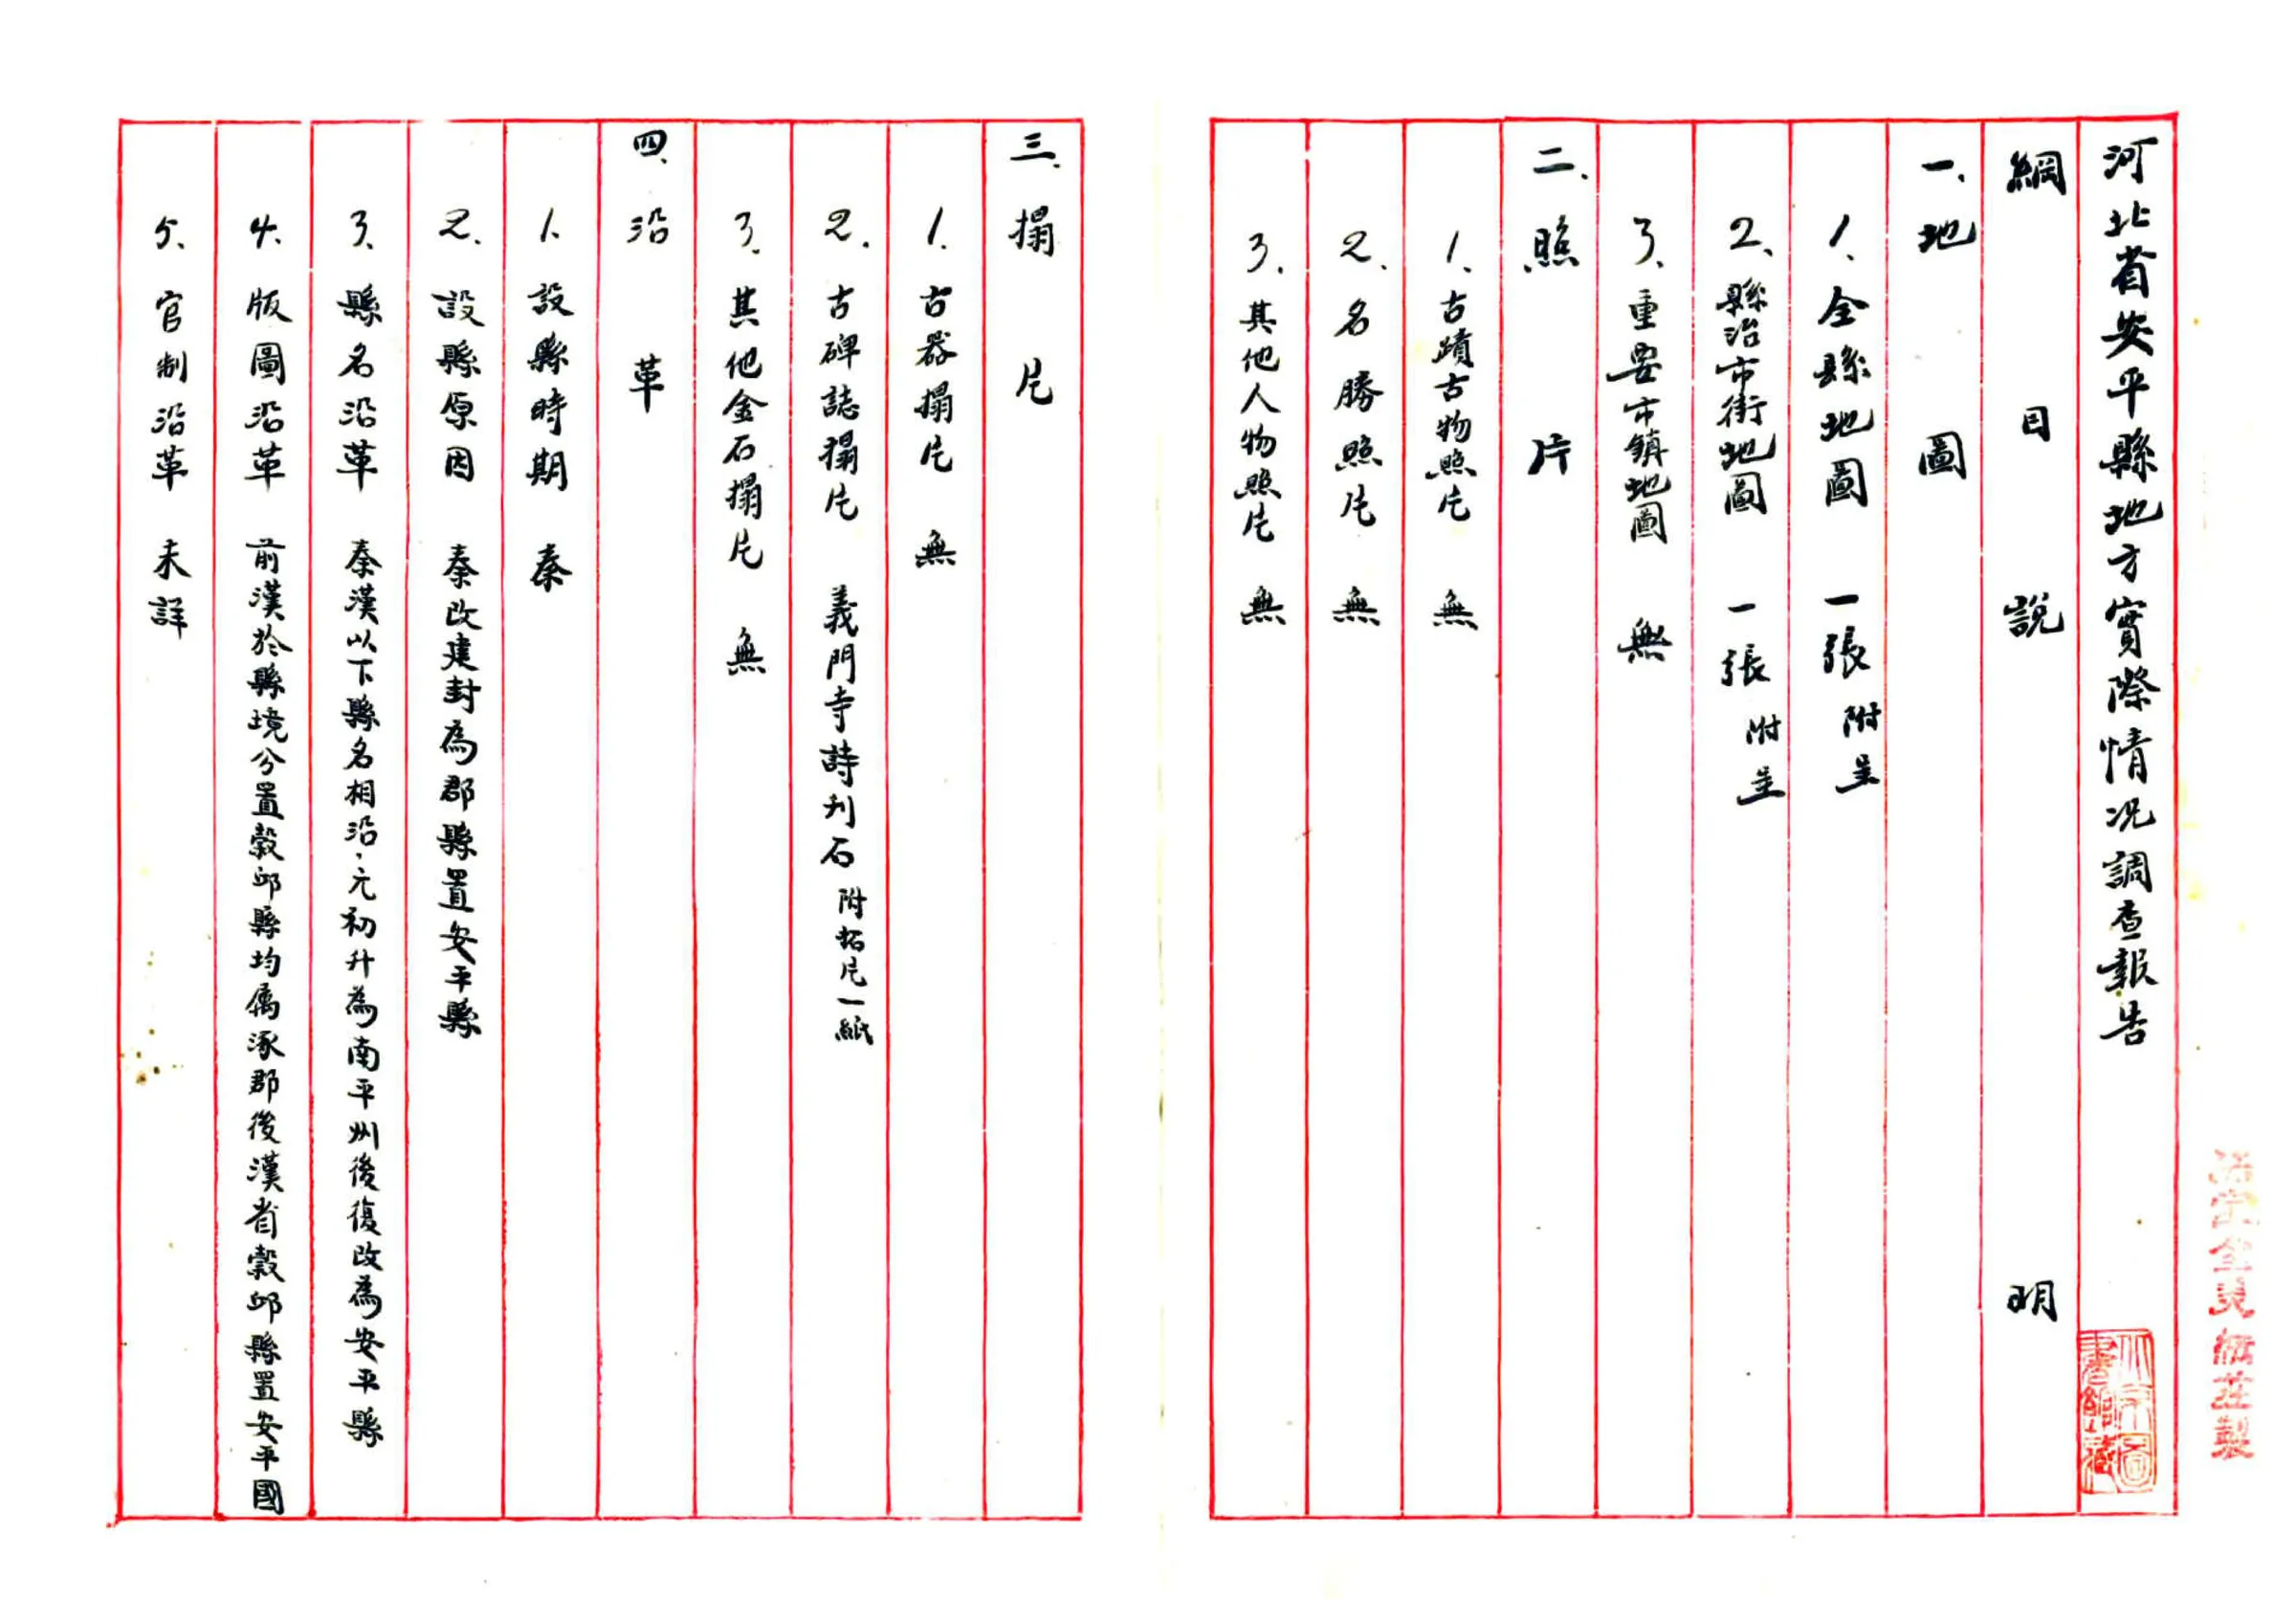 河北省安平縣地方實際情况調查報告
綱目說明
一、地圖
1、全縣地圖 一張 附呈
2、縣治市街地圖 一張 附呈
3、重要市鎮地圖 無
二、照片
1、古蹟古物照片 無
2、名勝照片 無
3、其他人物照片 無
三、搨片
1、古器搨片 無
2、古碑誌搨片 義門寺詩刋石 附拓片一紙
3、其他金石搨片 無
四、沿革
1、設縣時期 秦
2、設縣原因 秦改建封為郡縣置安平縣
3、縣名沿革 秦漢以下縣名相沿、元初升為南平州後復改為安平縣
4、版圖沿革 前漢於縣境分置穀邱縣均属涿郡後漢省穀邱縣置安平國
5、官制沿革 未詳